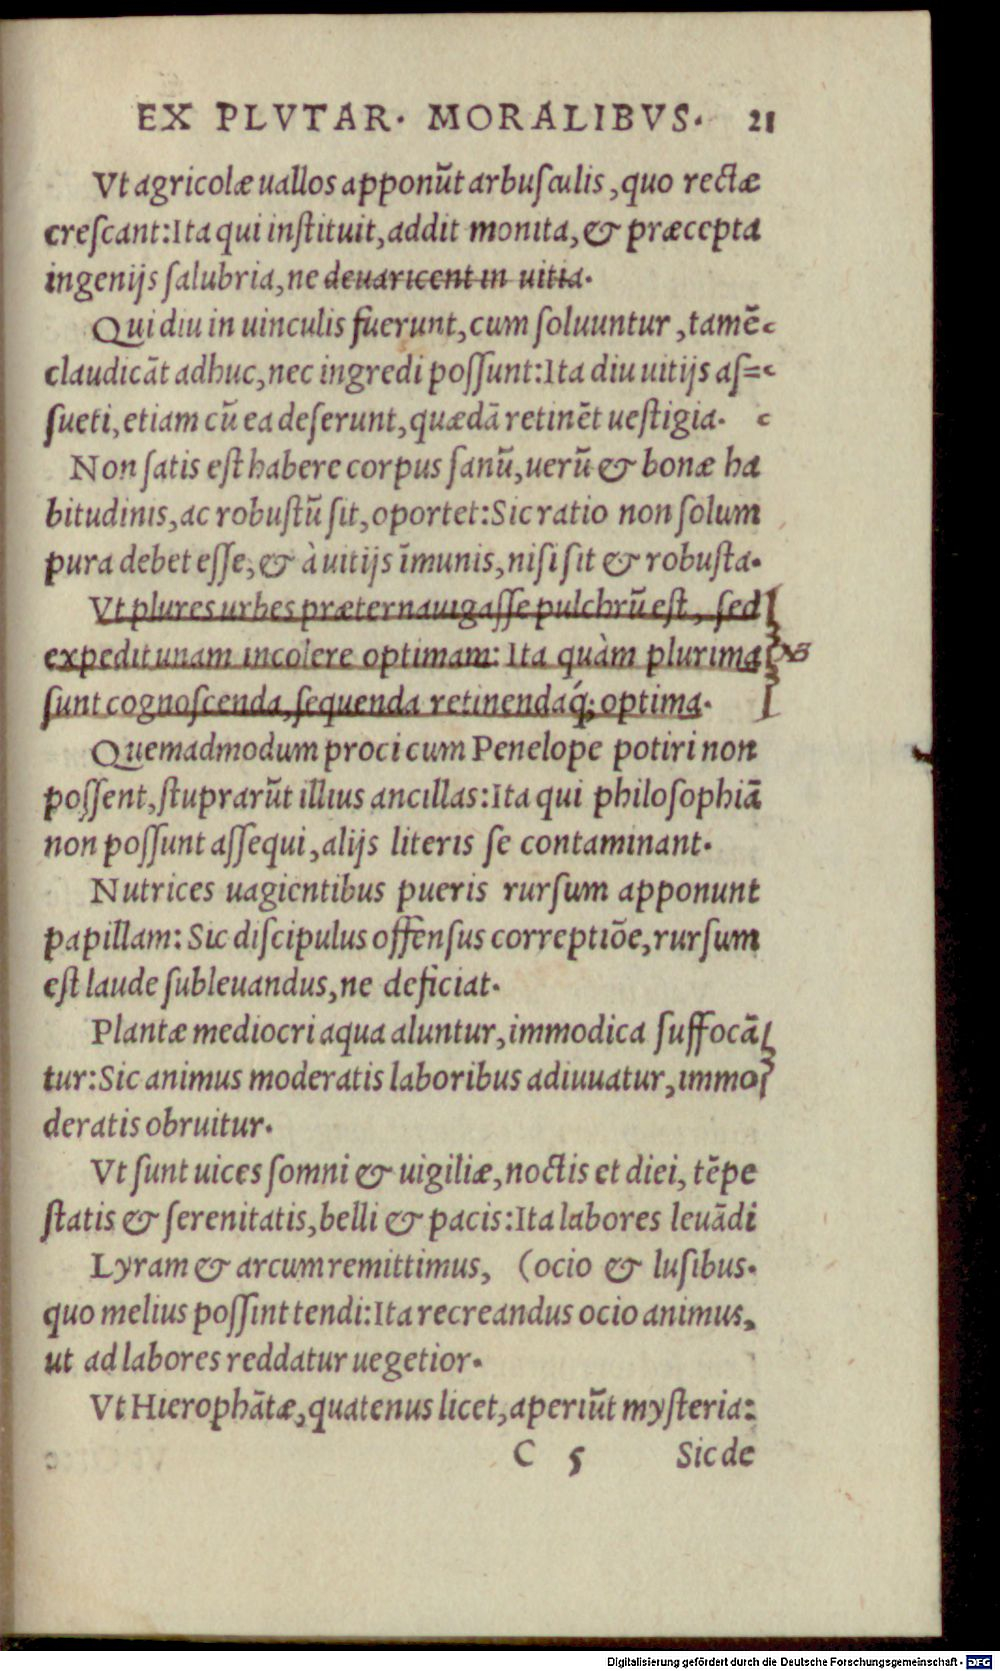 EX PLVTAR. MORALIBVS. 21
Vt agricolæ uallos apponūt arbuſculis, quo rectæ
creſcant: Ita qui inſtituit, addit monita, & præcepta
ingenijs ſalubria, ne deuaricent in uitia.
Qui diu in uinculis fuerunt, cum ſoluuntur, tamē
claudicāt adhuc, nec ingredi poſſunt: Ita diu uitijs aſ=
ſueti, etiam cū ea deſerunt, quædā retinēt ueſtigia.
Non ſatis eſt habere corpus ſanū, uerū & bonæ ha
bitudinis, ac robuſtū ſit, oportet: Sic ratio non ſolum
pura debet eſſe, & à uitijs īmunis, niſi ſit & robuſta.
Vt plures urbes præternauigaſſe pulchrū eſt, ſed
expedit unam incolere optimam: Ita quàm plurima
ſunt cognoſcenda, ſequenda retinendaq́; optima.
Quemadmodum proci cum Penelope potiri non
poſſent, ſtuprarūt illius ancillas: Ita qui philoſophiā
non poſſunt aſſequi, alijs literis ſe contaminant.
Nutrices uagientibus pueris rurſum apponunt
papillam: Sic diſcipulus offenſus correptiōe, rurſum
eſt laude ſubleuandus, ne deficiat.
Plantæ mediocri aqua aluntur, immodica ſuffocā
tur: Sic animus moderatis laboribus adiuuatur, immo
deratis obruitur.
Vt ſunt uices ſomni & uigiliæ, noctis et diei, tēpe
ſtatis & ſerenitatis, belli & pacis: Ita labores leuādi
Lyram & arcum remittimus, (ocio & luſibus.
quo melius poſſint tendi: Ita recreandus ocio animus,
ut ad labores reddatur uegetior.
Vt Hierophātæ, quatenus licet, aperiūt myſteria:
C 5 Sic de
Digitalisierung gefördert durch die Deutsche Forschungsgemeinschaft - DFG